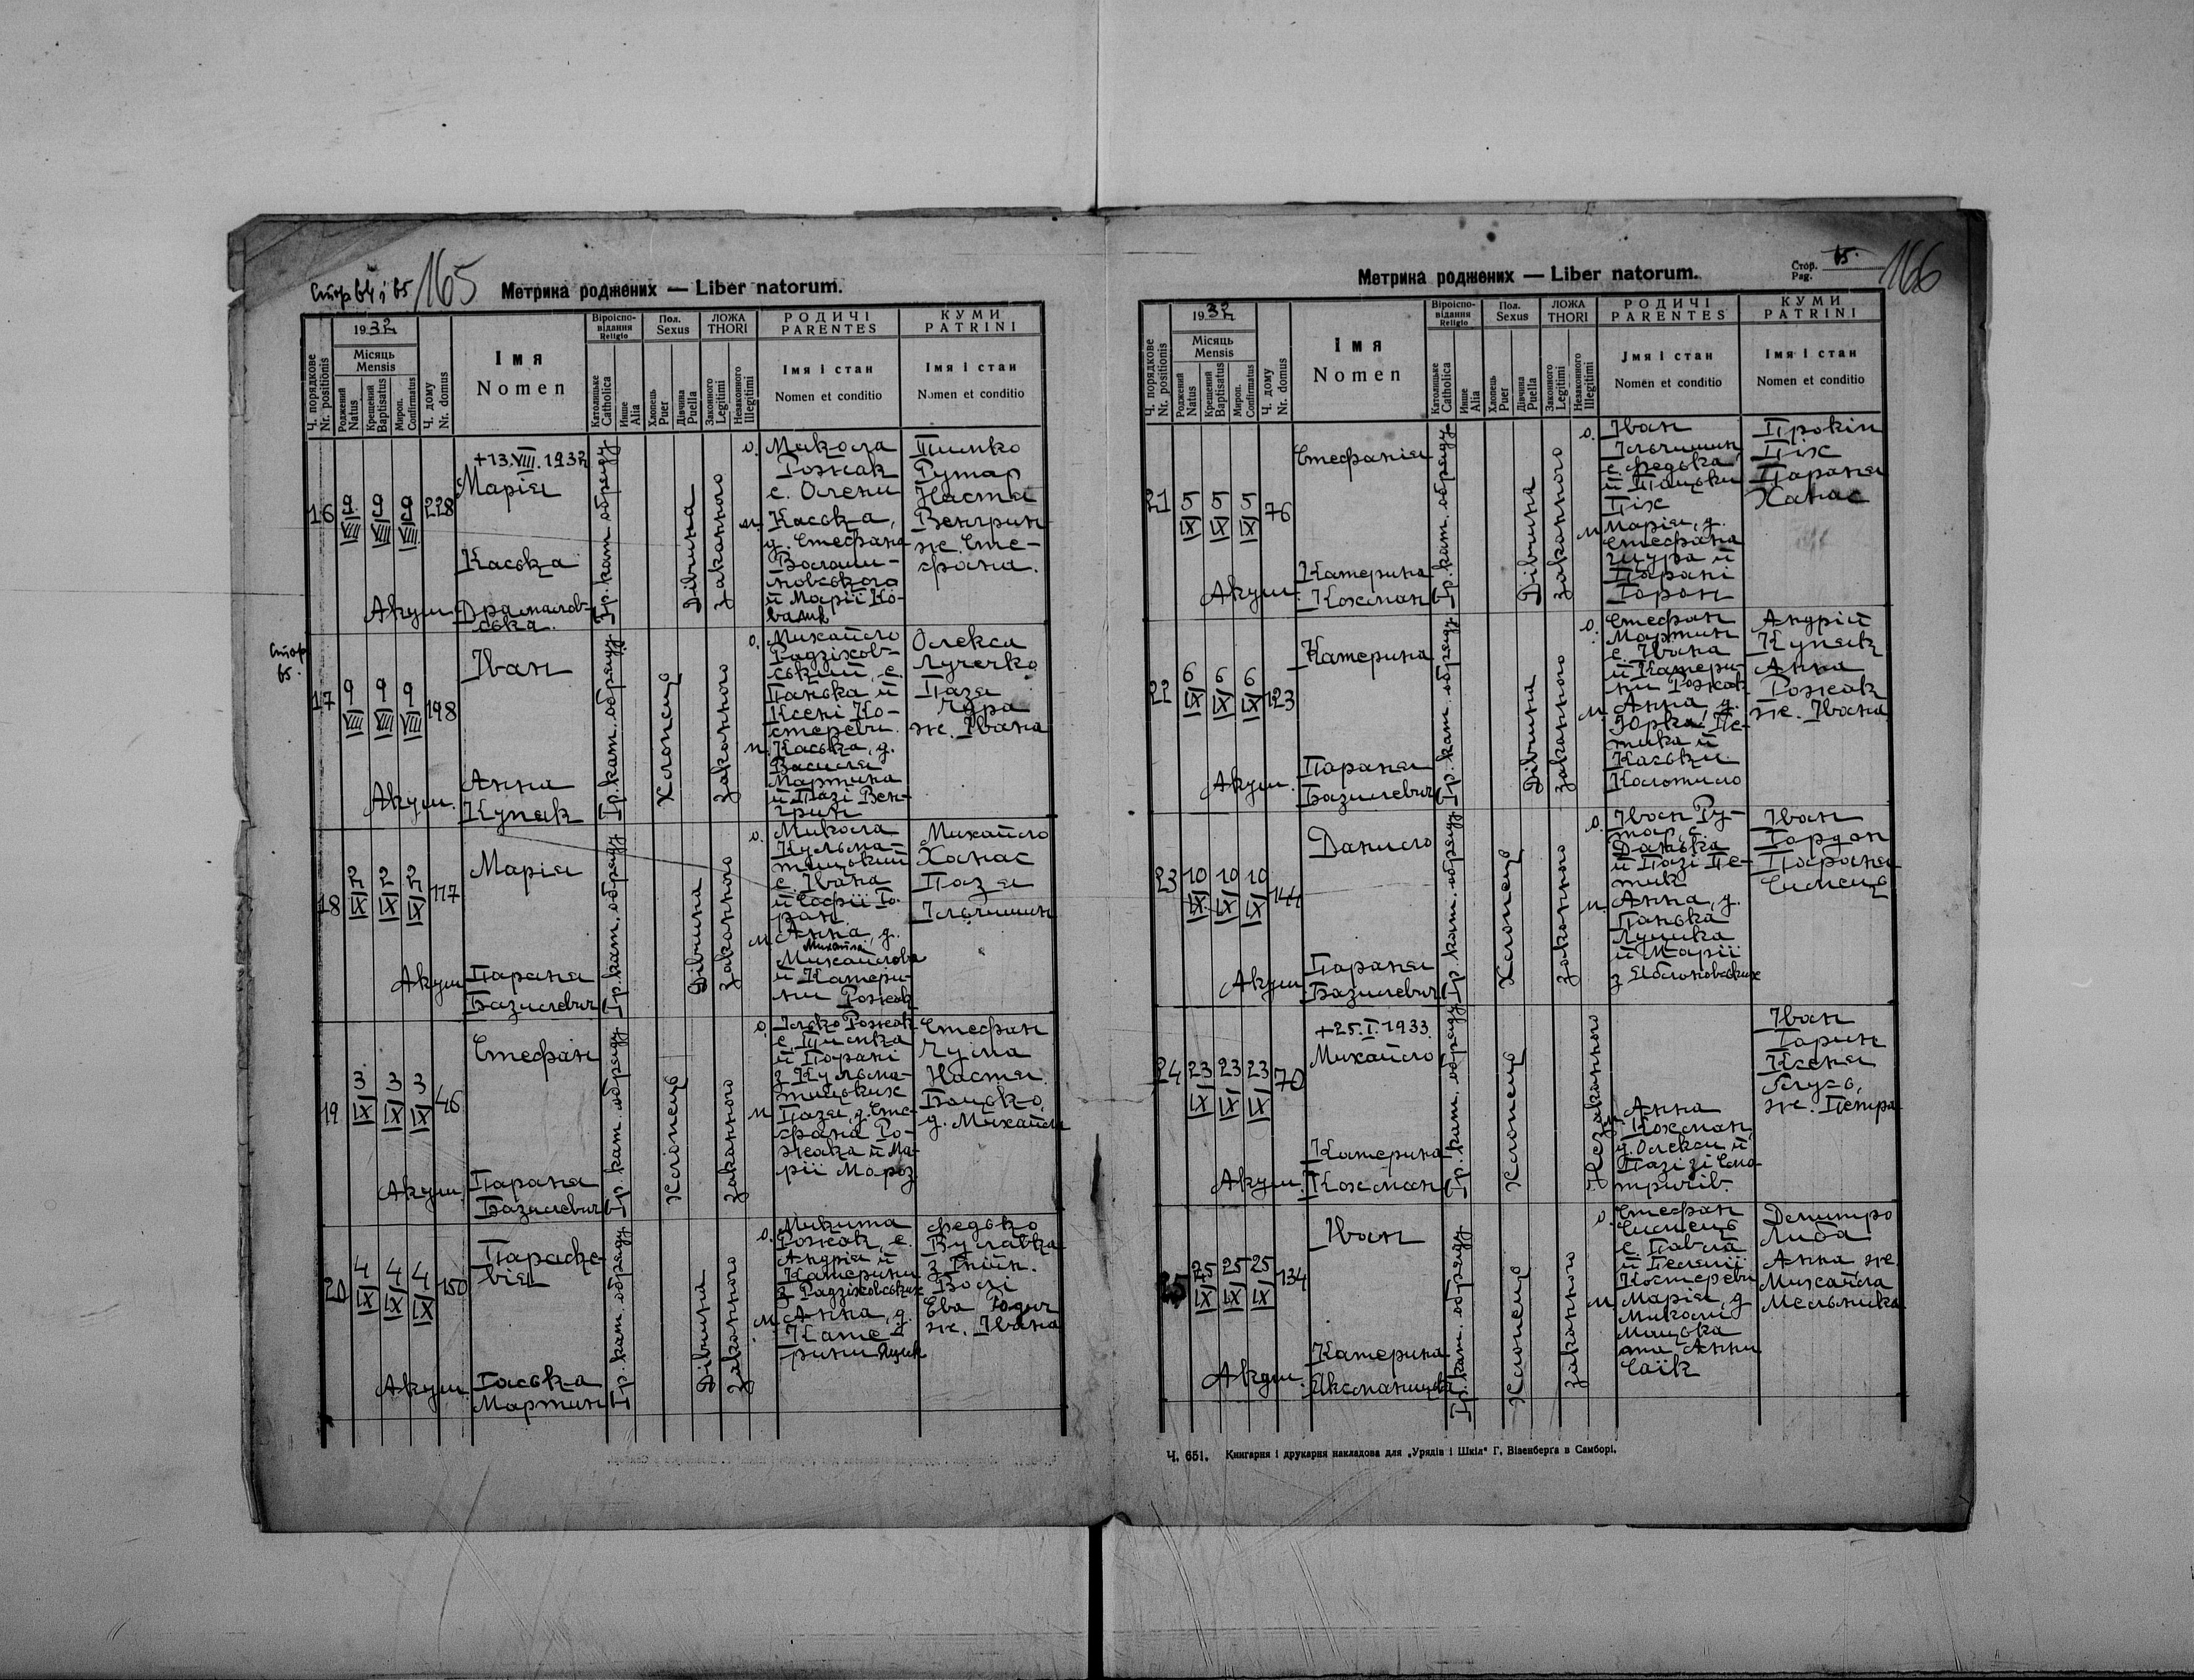 Стор 64 і 65
165
Метрика роджених — Liber natorum.
Ч. порядкове
Nr. positionis
1932
Місяць
Mensis
Роджений
Natus
Крещений
Baptisatus
Миров.
Confirmatus
Ч. дому
Nr. domus
Імя
Nomen
Віроіспо-
відання
Religio
Католицьке
Catholica
Инше
Alia
Пол.
Sexus
Хлопець
Puer
Дівчина
Puella
ЛОЖА
THORI
Законного
Legitimi
Незаконного
Illegitimi
РОДИЧІ
PARENTES
Імя і стан
Nomen et conditio
КУМИ
PATRINI
Імя і стан
Nomen et conditio
16
9
VIII
9
VIII
9
VIII
228
+13.VIII.1932
Марія
Каська
Акуш.
Гр. кат. обряду
Дівчина
Законного
о. Микола
Рожак
с. Олени
м. Каська,
д. Стефана
Волоши-
новського
й Марії Ко-
валик
Тимко
Рутар
Настя
Венгрин
ж. Сте-
фана.
Стор
65.
17
9
VIII
9
VIII
9
VIII
198
Іван
Акуш.
Анна
Купяк
Гр. кат. обряду
Хлопець
Законного
о. Михайло
Радзіхов-
ський, с.
Панька й
Ксені Ко-
стереви.
м. Каська, д.
Василя
Мартина
й Пазі Вен-
грин
Олекса
Лучечко
Пазя
Чура
ж. Івана
18
2
IX
2
IX
2
IX
117
Марія
Акуш
Параня
Базилевич
Гр. кат. обряду
Дівчина
Законного
о. Микола
Кульма-
тицький
с. Івана
й Софії Го-
ран.
м. Анна, д.
Михайла
Михайлова
й Катери-
ни Рожак
Михайло
Ханас
Пазя
Ільчишин
19
3
IX
3
IX
3
IX
46
Стефан
Акуш
Параня
Базилевич
Гр. кат. обряду
Хлопець
Законного
о. Ілько Рожак
с. Тимка
й Парані
з Кульма-
тицьких
м. Пазя, д. Сте-
фана Ро-
жака й Ма-
рії Мороз
Стефан
Чума
Настя
Бацько,
д. Михайла
20
4
IX
4
IX
4
IX
150
Параске-
вія
Акуш.
Гаська
Мартин
Гр. кат. обряду
Дівчина
Законного
о. Микита
Рожак, с.
Андрія й
Катерини
з Радзіховських
м. Анна, д.
Кате-
рини Яцик
Федько
Вулавка
з Гнійн.
Волі
Ева Родич
ж. Івана
Метрика роджених — Liber natorum.
Стор.
Pag.
65.
166
Ч. порядкове
Nr. positionis
1932
Місяць
Mensis
Роджений
Natus
Крещений
Baptisatus
Миров.
Confirmatus
Ч. дому
Nr. domus
Імя
Nomen
Віроіспо-
відання
Religio
Католицьке
Catholica
Инше
Alia
Пол.
Sexus
Хлопець
Puer
Дівчина
Puella
ЛОЖА
THORI
Законного
Legitimi
Незаконного
Illegitimi
РОДИЧІ
PARENTES
Імя і стан
Nomen et conditio
КУМИ
PATRINI
Імя і стан
Nomen et conditio
21
5
IX
5
IX
5
IX
76
Стефанія
Акуш.
Катерина
Кохман
Гр. кат. обряду
Дівчина
Законного
о. Іван
Ільчишин,
с. Федька
й Пацьки
Піх
м. Марія, д.
Стефана
Щура й
Парані
Горон
Прокіп
Піх
Параня
Ханас
22
6
IX
6
IX
6
IX
123
Катерина
Акуш.
Параня
Базилевич
Гр. кат. обряду
Дівчина
Законного
о. Стефан
Мартин
с. Івана
й Катери-
ни Рожак
м. Анна, д.
Юрка Пе-
тика й
Каськи
Коломийло
Андрій
Купяк
Анна
Рожак
ж. Івана
23
10
IX
10
IX
10
IX
144
Данило
Акуш
Параня
Базилевич
Гр. кат. обряду
Хлопець
Законного
о. Іван Ру-
тар, с.
Данька
й Пазі Пе-
тик
м. Анна, д.
Панька
Луцика
й Марії
з Яблоновських
Іван
Гордон
Параня
Симець
24
23
IX
23
IX
23
IX
70
+25.I.1933.
Михайло
Акуш.
Катерина
Кохман
Гр. кат. обряду
Хлопець
Незаконного
Анна
Кохман,
д. Олекси й
Пазі зі Сма-
тричів.
Іван
Гарин
Ксеня
ж. Петра
25
25
IX
25
IX
25
IX
134
Іван
Акуш.
Катерина
Гр. кат. обряду
Хлопець
Законного
о. Стефан
Симець
с. Павла
й Пелагії
Костереви
м. Марія, д.
Миколи
Мацька
та Анни
Саїк
Демитро
Либа
Анна ж.
Михайла
Мельника
Ч. 651. Книгарня і друкарня накладова для „Урядів і Шкіл" Г. Візенберґа в Самборі.